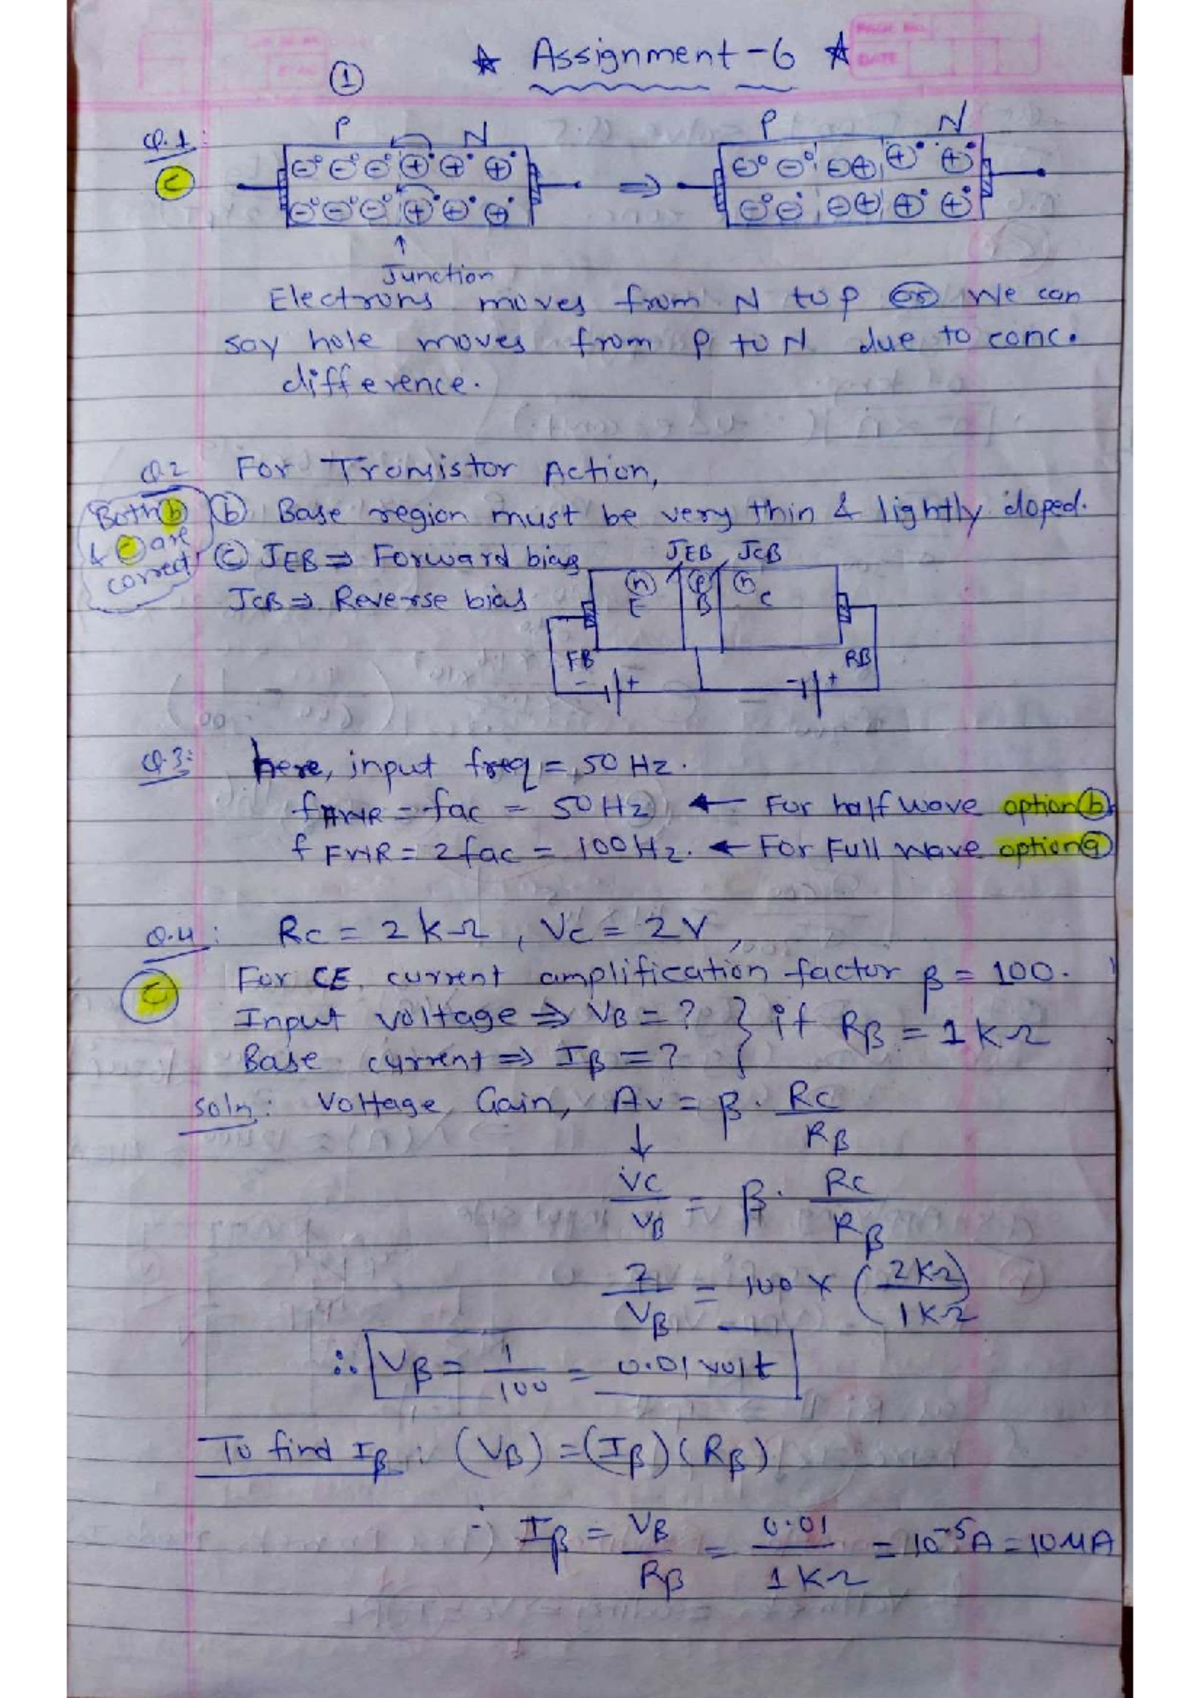 PAGE NO.
DATE
☆ Assignment-6 ☆
①
Q.1:
P N P N
ⓒ
⇒
↑
Junction
Electrons moves from N to P OR We can
say hole moves from P to N due to conc.
difference.
Q.2 For Transistor Action,
Both ⓑ
& ⓒ are
correct
ⓑ Base region must be very thin & lightly doped.
ⓒ JEB ⇒ Forward bias
JCB ⇒ Reverse bias
JEB JCB
n p n
E B C
FB RB
- + - +
Q.3: here, input freq = 50 Hz.
fHWR = fac = 50 HZ ← For half wave option ⓑ
f FWR = 2fac = 100 Hz. ← For Full wave option ⓐ
Q.4: Rc = 2 kΩ, Vc = 2 V,
ⓒ
For CE current amplification factor β = 100.
Input voltage ⇒ VB = ? } if Rβ = 1 kΩ
Base current ⇒ Iβ = ?
Soln: Voltage Gain, Av = β. Rc/Rβ
↓
Vc/Vβ = β. Rc/Rβ
2/Vβ = 100 × (2kΩ/1kΩ)
∴ Vβ = 1/100 = 0.01 volt
To find Iβ : (Vβ) = (Iβ)(Rβ)
∴ Iβ = Vβ/Rβ = 0.01/1kΩ = 10⁻⁵A = 10μA